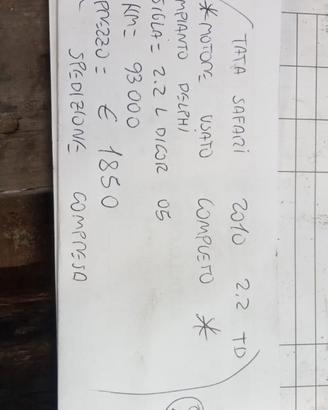 TATA SAFARI 2010 2.2 TD
* MOTORE USATO COMPLETO *
IMPIANTO DELPHI
SIGLA = 2.2 L DICOR 05
KM = 93000
PREZZO = € 1850
SPEDIZIONE COMPRESA